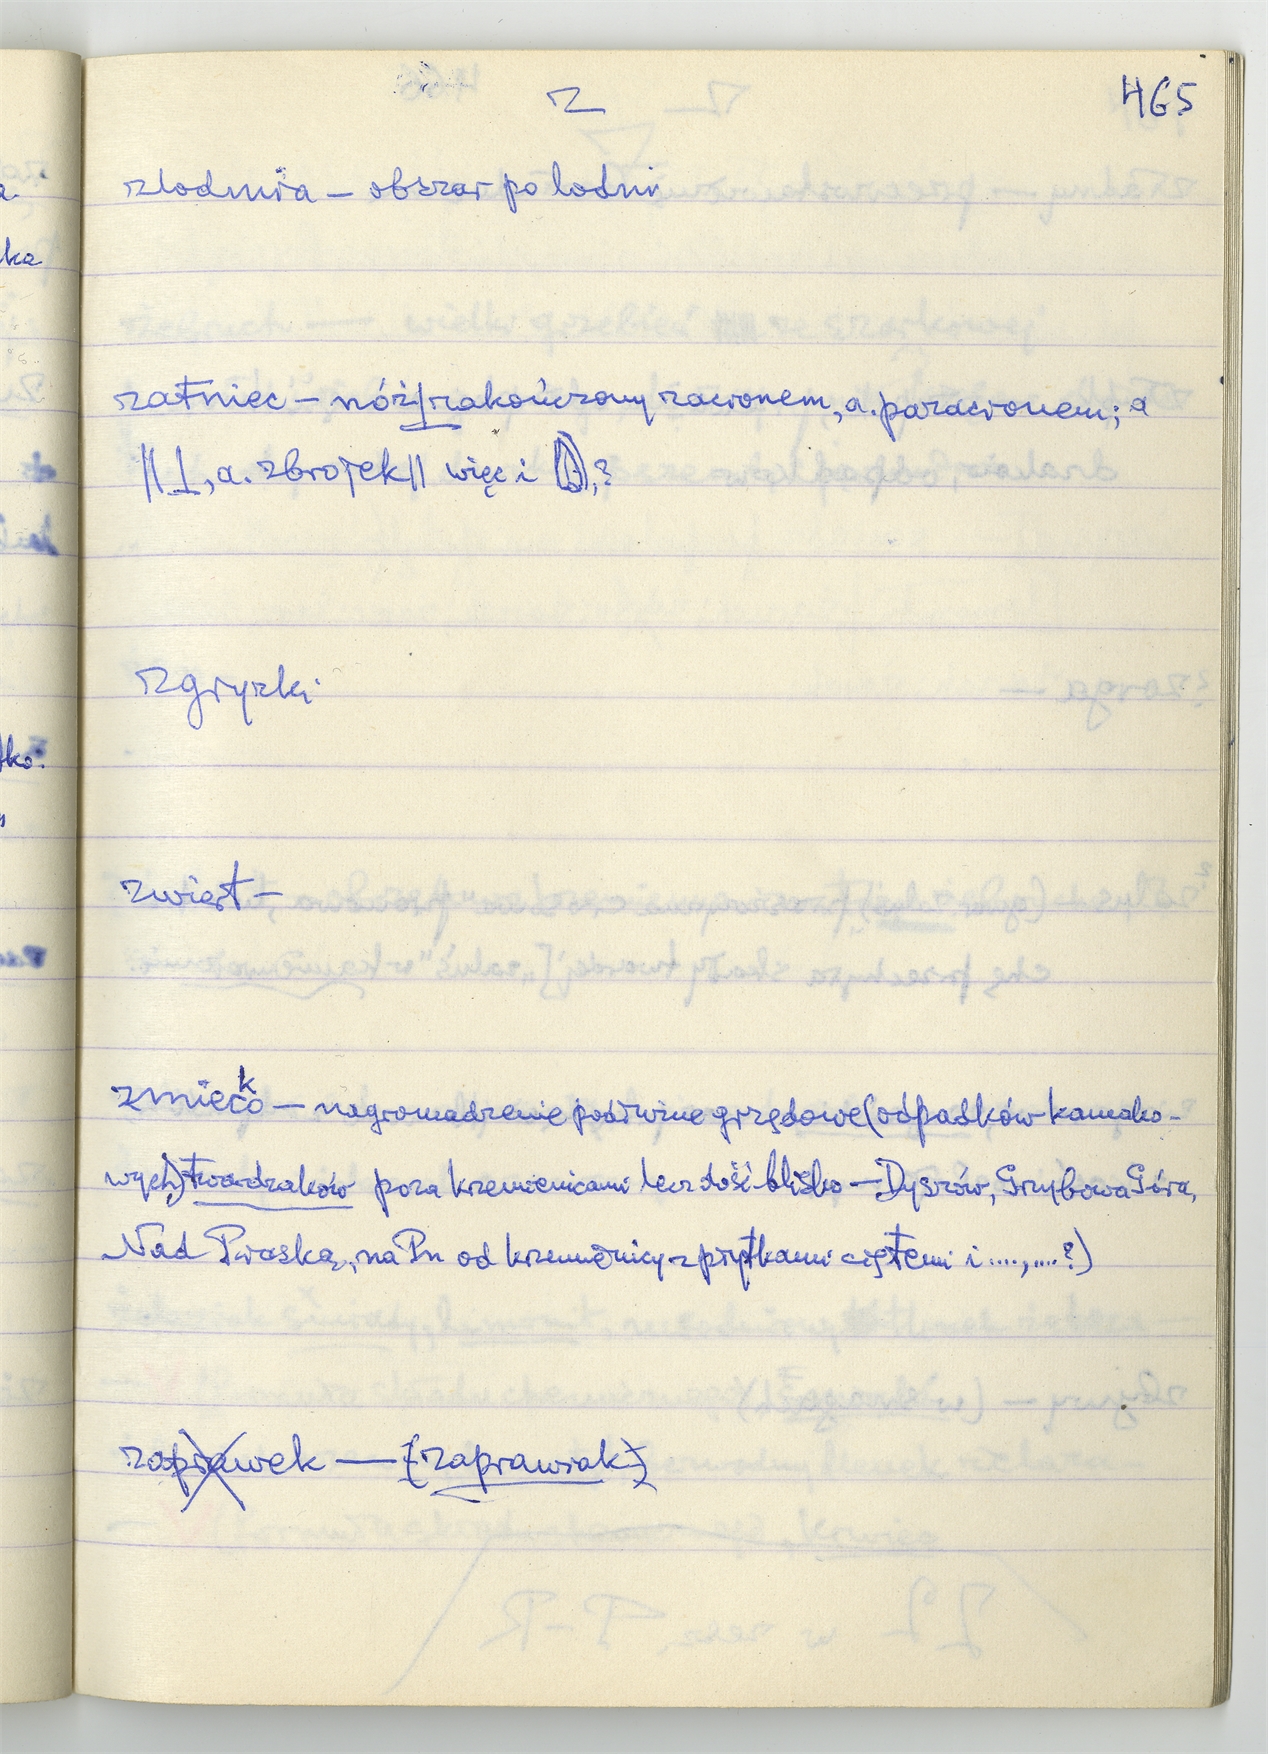 Z
465
zlodnia – obszar po lodni
zatniec – nóż zakończony zacionem, a. paracionem; a
||⊥, a. zbrojek|| więc i ?
zgryzki
zwiert –
zmiecko – nagromadzenie podziwne grzędowe (odpadków kamako-
wych) twardzaków poza krzemienicami lecz dość blisko – Dyszów, Grzybowa Góra,
Nad Piaską, na Pn od krzemienicy z płytkami ciętemi i ...., .... ?)
zaprawek — (zaprawiak)